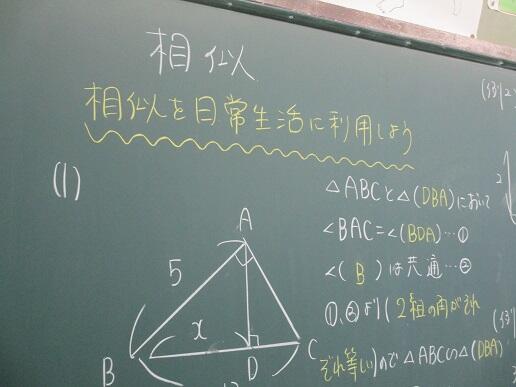 相似
相似を日常生活に利用しよう
(1)
△ABCと△(DBA)において
∠BAC=∠(BDA)…①
∠(B)は共通…②
①、②より(2組の角がそれ
ぞれ等しい)ので△ABC∽△(DBA)
A
5
x
B
D
C
2